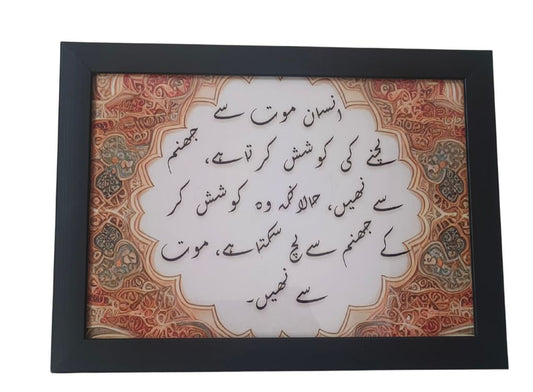 انسان موت سے
بچنے کی کوشش کرتا ہے، جہنم
سے نہیں، حالانکہ وہ کوشش کر
کے جہنم سے بچ سکتا ہے، موت
سے نہیں۔